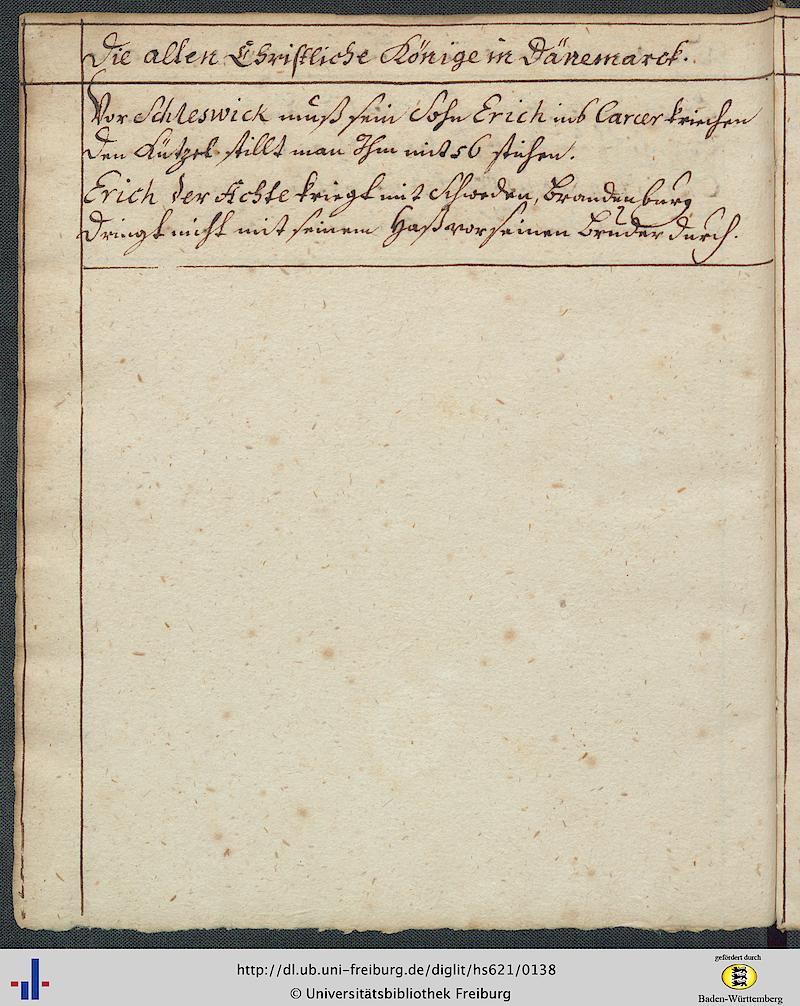 Die alten Christliche Könige in Dänemarck.
Vor Schleswick muß sein Sohn Erich ins Carcer kriechen
Den Kützel stillt man Ihm mit 56 stichen.
Erich der Achte kriegt mit Schweden, Brandenburg
Dringt nicht mit seinem Haß vor seinen Bruder durch.
http://dl.ub.uni-freiburg.de/diglit/hs621/0138
© Universitätsbibliothek Freiburg
gefördert durch
Baden-Württemberg